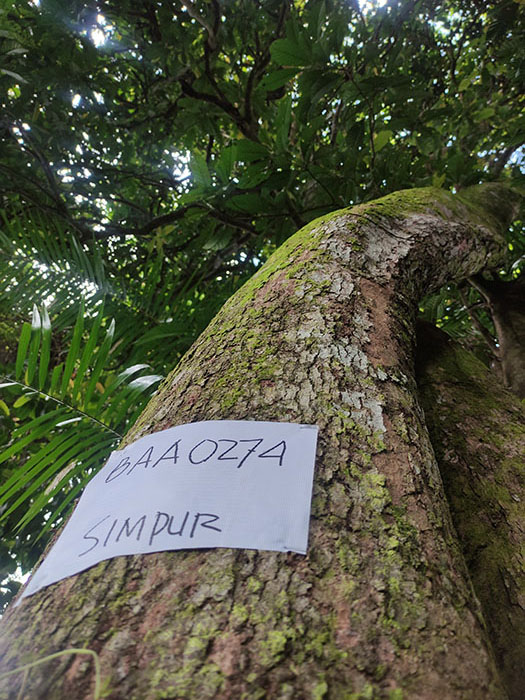 BAA0274
SIMPUR